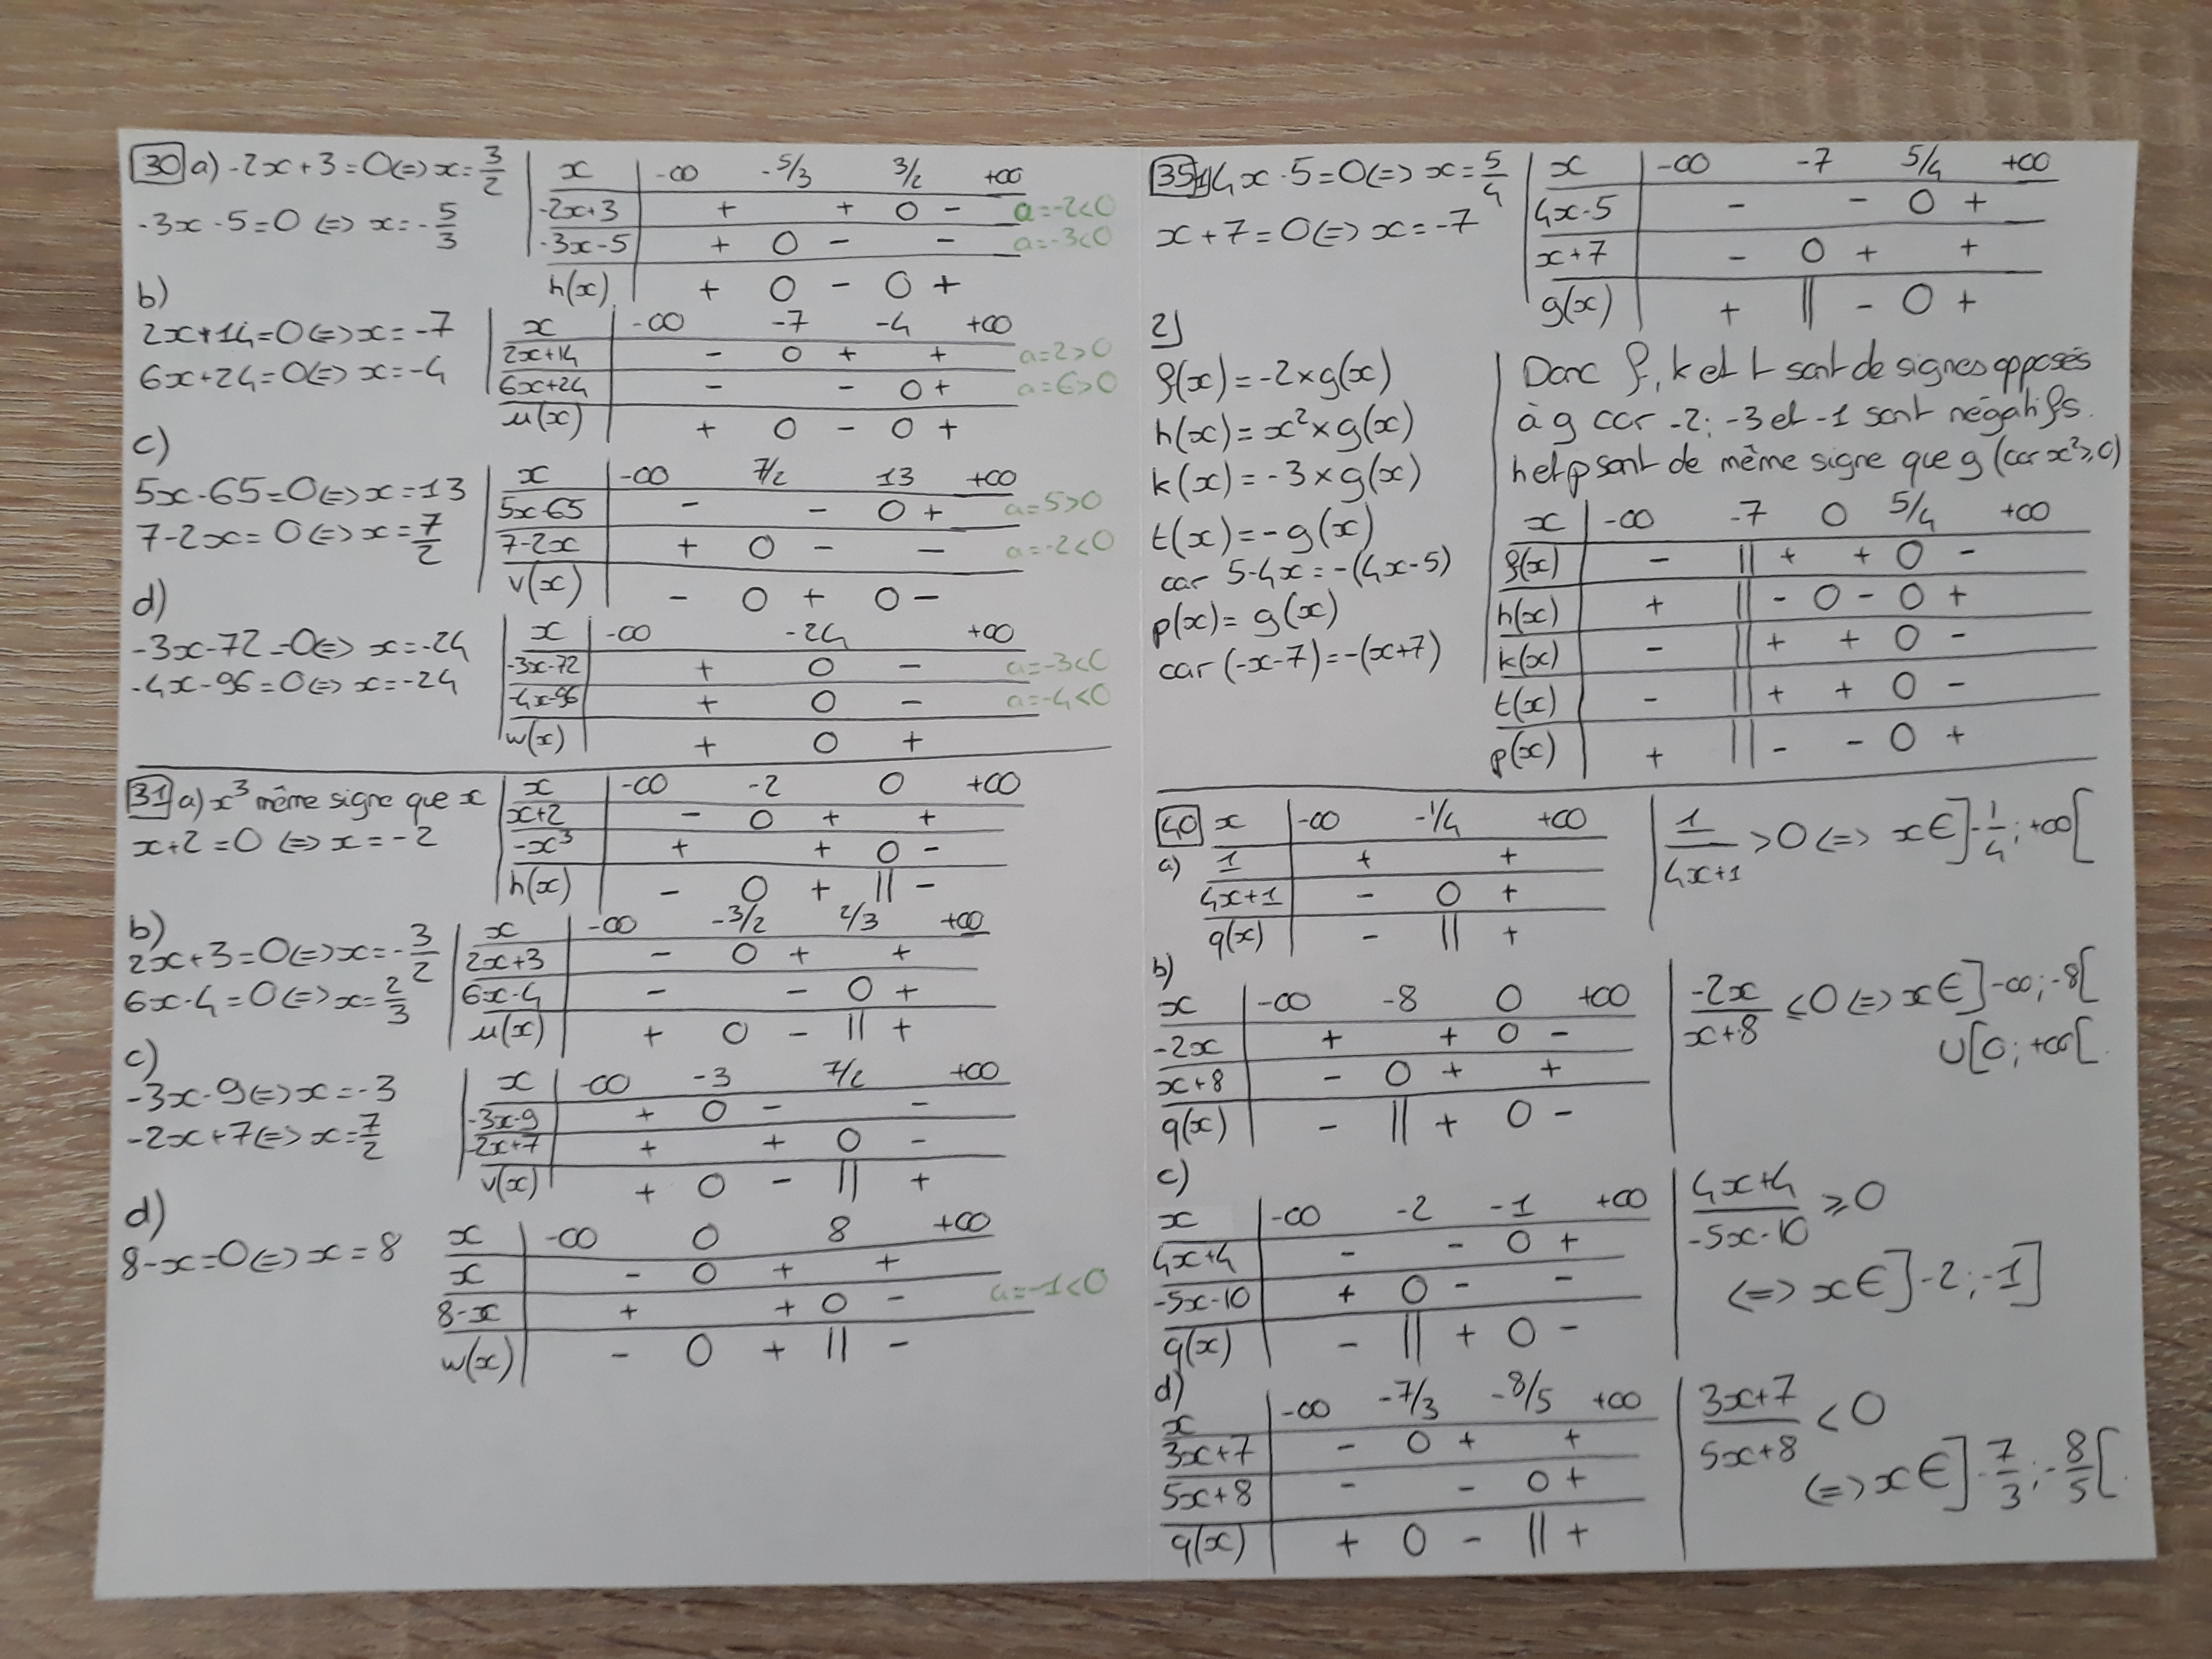 30 a) -2x+3=0 <=> x=3/2
-3x-5=0 <=> x=-5/3
x | -∞ -5/3 3/2 +∞
-2x+3 | + + 0 - a=-2<0
-3x-5 | + 0 - - a=-3<0
h(x) | + 0 - 0 +
b)
2x+14=0 <=> x=-7
6x+24=0 <=> x=-4
x | -∞ -7 -4 +∞
2x+14 | - 0 + + a=2>0
6x+24 | - - 0 + a=6>0
u(x) | + 0 - 0 +
c)
5x-65=0 <=> x=13
7-2x=0 <=> x=7/2
x | -∞ 7/2 13 +∞
5x-65 | - - 0 + a=5>0
7-2x | + 0 - - a=-2<0
v(x) | - 0 + 0 -
d)
-3x-72=0 <=> x=-24
-4x-96=0 <=> x=-24
x | -∞ -24 +∞
-3x-72 | + 0 - a=-3<0
-4x-96 | + 0 - a=-4<0
w(x) | + 0 +
31 a) x³ même signe que x
x+2=0 <=> x=-2
x | -∞ -2 0 +∞
x+2 | - 0 + +
-x³ | + + 0 -
h(x) | - 0 + || -
b)
2x+3=0 <=> x=-3/2
6x-4=0 <=> x=2/3
x | -∞ -3/2 2/3 +∞
2x+3 | - 0 + +
6x-4 | - - 0 +
u(x) | + 0 - || +
c)
-3x-9 <=> x=-3
-2x+7 <=> x=7/2
x | -∞ -3 7/2 +∞
-3x-9 | + 0 - -
-2x+7 | + + 0 -
v(x) | + 0 - || +
d)
8-x=0 <=> x=8
x | -∞ 0 8 +∞
x | - 0 + +
8-x | + + 0 - a=-1<0
w(x) | - 0 + || -
35 1) 4x-5=0 <=> x=5/4
x+7=0 <=> x=-7
x | -∞ -7 5/4 +∞
4x-5 | - - 0 +
x+7 | - 0 + +
g(x) | + || - 0 +
2)
f(x)=-2×g(x)
h(x)=x²×g(x)
k(x)=-3×g(x)
t(x)=-g(x)
car 5-4x=-(4x-5)
p(x)=g(x)
car (-x-7)=-(x+7)
Donc f, k et t sont de signes opposés
à g car -2; -3 et -1 sont négatifs.
h et p sont de même signe que g (car x²≥0)
x | -∞ -7 0 5/4 +∞
f(x) | - || + + 0 -
h(x) | + || - 0 - 0 +
k(x) | - || + + 0 -
t(x) | - || + + 0 -
p(x) | + || - - 0 +
40
a)
x | -∞ -1/4 +∞
1 | + +
4x+1 | - 0 +
q(x) | - || +
1/(4x+1) >0 <=> x∈]-1/4;+∞[
b)
x | -∞ -8 0 +∞
-2x | + + 0 -
x+8 | - 0 + +
q(x) | - || + 0 -
-2x/(x+8) ≤0 <=> x∈]-∞;-8[
∪[0;+∞[.
c)
x | -∞ -2 -1 +∞
4x+4 | - - 0 +
-5x-10 | + 0 - -
q(x) | - || + 0 -
(4x+4)/(-5x-10) ≥0
<=> x∈]-2;-1]
d)
x | -∞ -7/3 -8/5 +∞
3x+7 | - 0 + +
5x+8 | - - 0 +
q(x) | + 0 - || +
(3x+7)/(5x+8) <0
<=> x∈]-7/3;-8/5[.